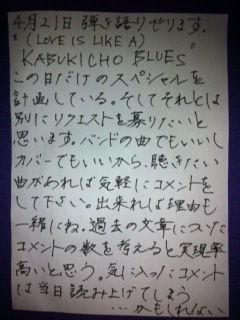 4月21日 弾き語りやります。
"(LOVE IS LIKE A)
KABUKICHO BLUES"
この日だけのスペシャルを
計画している。そしてそれとは
別にリクエストを募りたいと
思います。バンドの曲でもいいし
カバーでもいいから、聴きたい
曲があれば気軽にコメントを
して下さい。出来れば理由も
一緒にね。過去の文章についた
コメントの数を考えると実現率
高いと思う。気に入ったコメント
は当日読み上げてしまう
…かもしれない